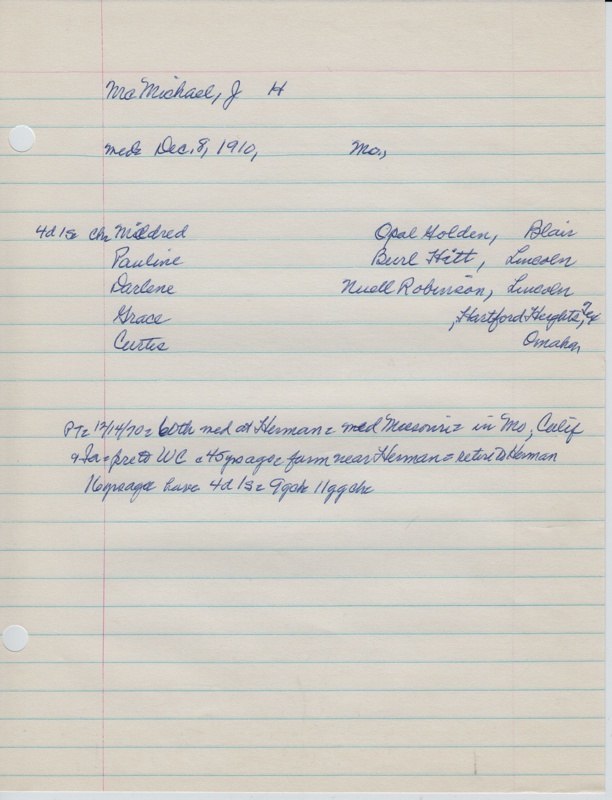 McMichael, J H
med= Dec. 8, 1910, Mo.,
4d 1s= ch= Mildred Opal Golden, Blair
Pauline Burl Hitt, Lincoln
Darlene Nuell Robinson, Lincoln
Grace , Hartford Heights, Tex
Curtis Omaha,
PT= 12/14/70= 60th med at Herman= med Missouri= in Mo, Calif
& Ia= pre to WC = 45 yrs ago= farm near Herman= retire to Herman
16 yrs ago= have 4d 1s= 9gch= 11ggch=